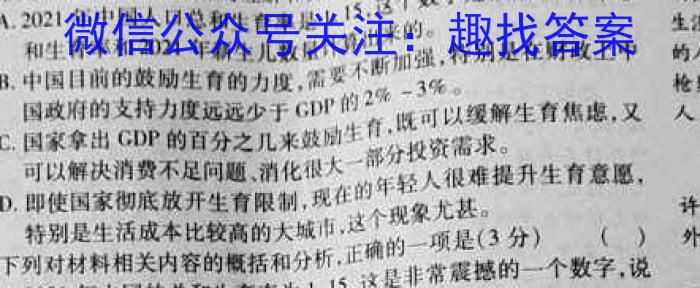 A. 2021年中国人口总和生育率是1.15,这个数字
微信公众号关注：趣找答案
和生 年新生儿数 来的。
B. 中国目前的鼓励生育的力度,需要不断加强,特别是在财政上中
国政府的支持力度远远少于GDP的2%-3%。
C. 国家拿出GDP的百分之几来鼓励生育,既可以缓解生育焦虑,又
可以解决消费不足问题、消化很大一部分投资需求。
D. 即使国家彻底放开生育限制,现在的年轻人很难提升生育意愿,
特别是生活成本比较高的大城市,这个现象尤甚。
下列对材料相关内容的概括和分析,正确的一项是(3分) ( )
1.15,这是非常震撼的一个数字,说
生活
的
枪
人
许
外